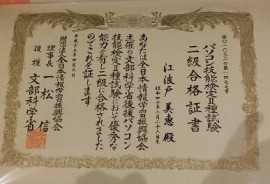 パソコン技能検定Ⅱ種試験
二級合格証書
江波戸 美恵 殿
あなたは全日本情報学習振興協会
主催の文部科学省後援パソコン
技能検定Ⅱ種試験において優秀な
能力を有し二級に合格されました
のでこれを証します
財団法人全日本情報学習振興協会
理事長 一松 信
後援 文部科学省